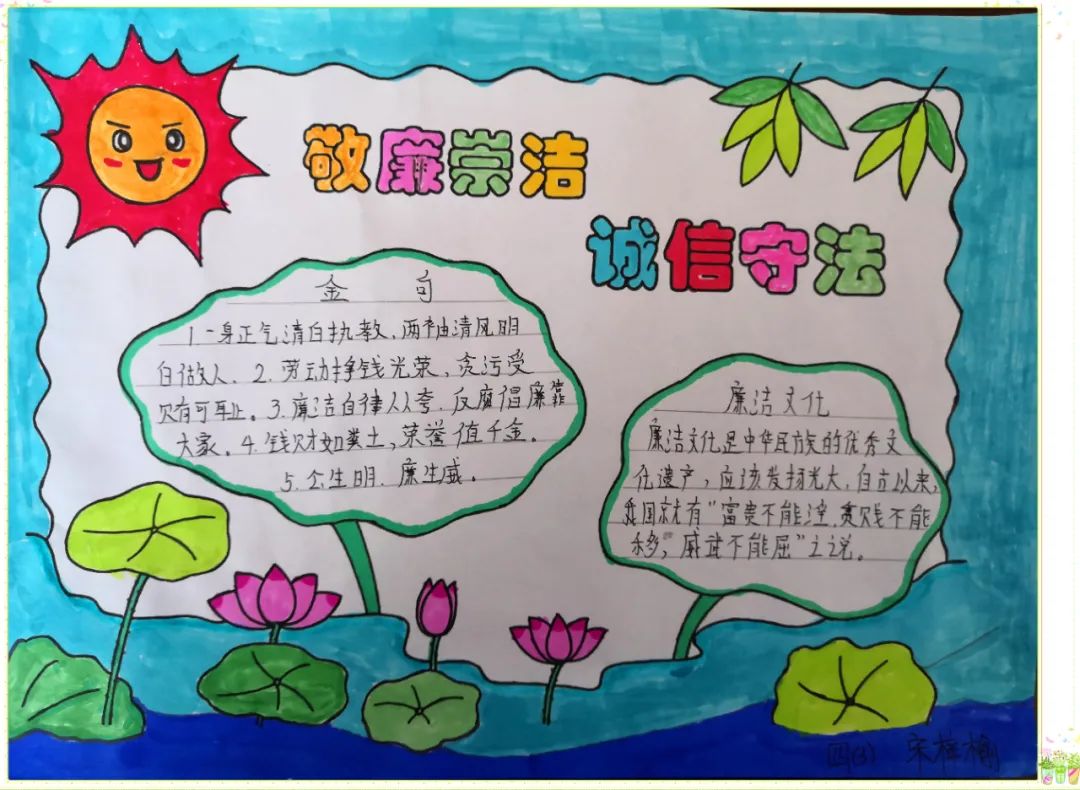 敬廉崇洁
诚信守法
金 句
1.一身正气清白执教、两袖清风明
白做人、2.劳动挣钱光荣、贪污受
贝有可耳止。3.廉洁自律人人夸、反腐倡廉靠
大家。4.钱财如粪土，荣誉值千金。
5.公生明、廉生威。
廉洁文化
廉洁文化是中华民族的优秀文
化遗产，应该发扬光大，自古以来，
我国就有“富贵不能淫，贫贱不能
移，威武不能屈”之说。
四(3) 宋梓榆